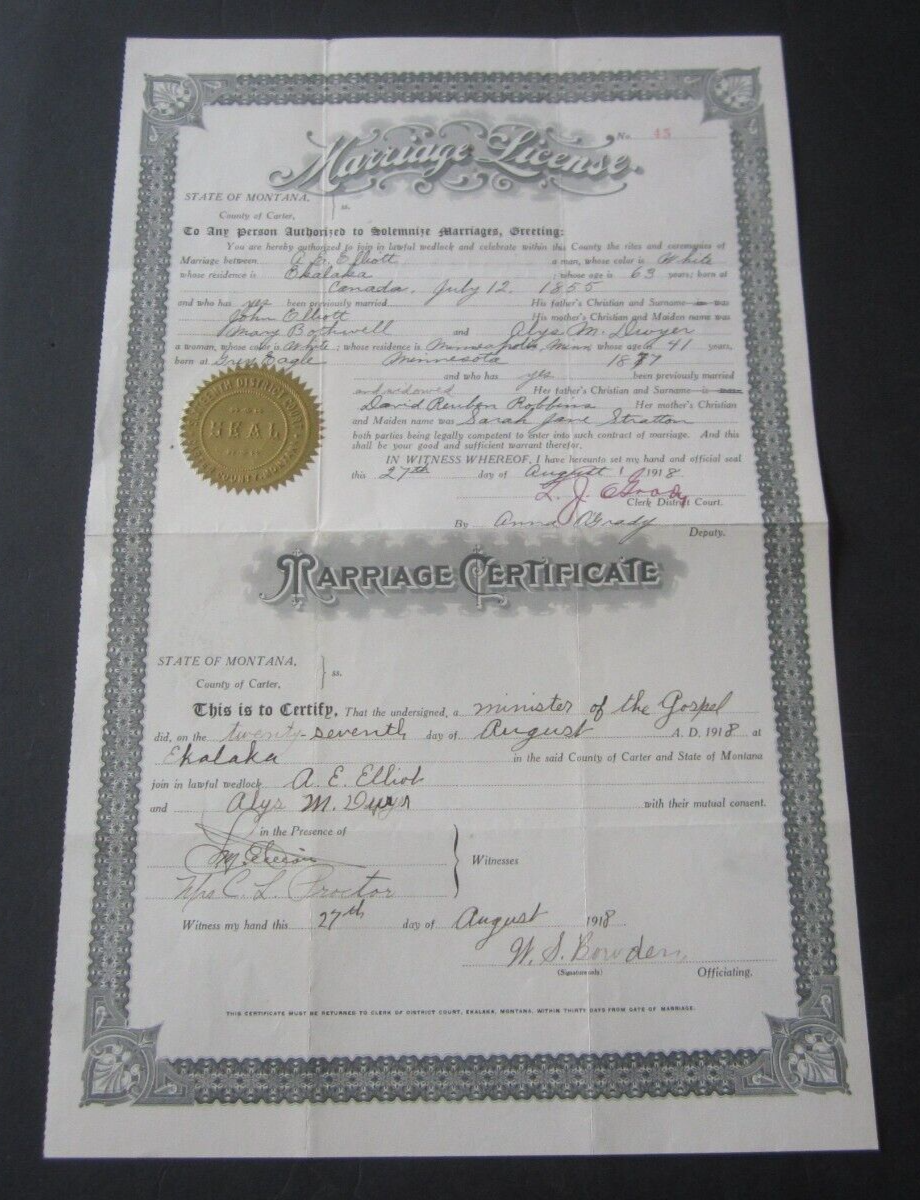 No. 45
Marriage License.
STATE OF MONTANA,
County of Carter, } ss.
To Any Person Authorized to Solemnize Marriages, Greeting:
You are hereby authorized to join in lawful wedlock and celebrate within this County the rites and ceremonies of
Marriage between A. E. Elliott a man, whose color is White
whose residence is Ekalaka ; whose age is 63 years; born at
Canada, July 12 1855
and who has yes been previously married His father's Christian and Surname is was
John Elliott His mother's Christian and Maiden name was
Mary Bothwell and Alys M. Dwyer
a woman, whose color is White ; whose residence is Minneapolis, Minn; whose age is 41 years,
born at Grey Eagle Minnesota 1877
and who has yes been previously married
and widowed Her father's Christian and Surname is was
David Reuben Robbins Her mother's Christian
and Maiden name was Sarah Jane Stratton
both parties being legally competent to enter into such contract of marriage. And this
shall be your good and sufficient warrant therefor.
IN WITNESS WHEREOF, I have hereunto set my hand and official seal
this 27th day of August 1918
L. J. O'Grady
Clerk District Court.
By Anna O'Grady
Deputy.
SIXTEENTH DISTRICT COURT
SEAL
CARTER COUNTY, MONTANA
MARRIAGE CERTIFICATE
STATE OF MONTANA,
County of Carter, } ss.
This is to Certify, That the undersigned, a minister of the Gospel
did, on the twenty-seventh day of August A. D. 1918 at
Ekalaka in the said County of Carter and State of Montana
join in lawful wedlock A. E. Elliot
and Alys M. Dwyer with their mutual consent.
in the Presence of
Witnesses
Mrs C. L. Proctor
Witness my hand this 27th day of August 1918
W. S. Bowden
(Signature only) Officiating.
THIS CERTIFICATE MUST BE RETURNED TO CLERK OF DISTRICT COURT, EKALAKA, MONTANA, WITHIN THIRTY DAYS FROM DATE OF MARRIAGE.